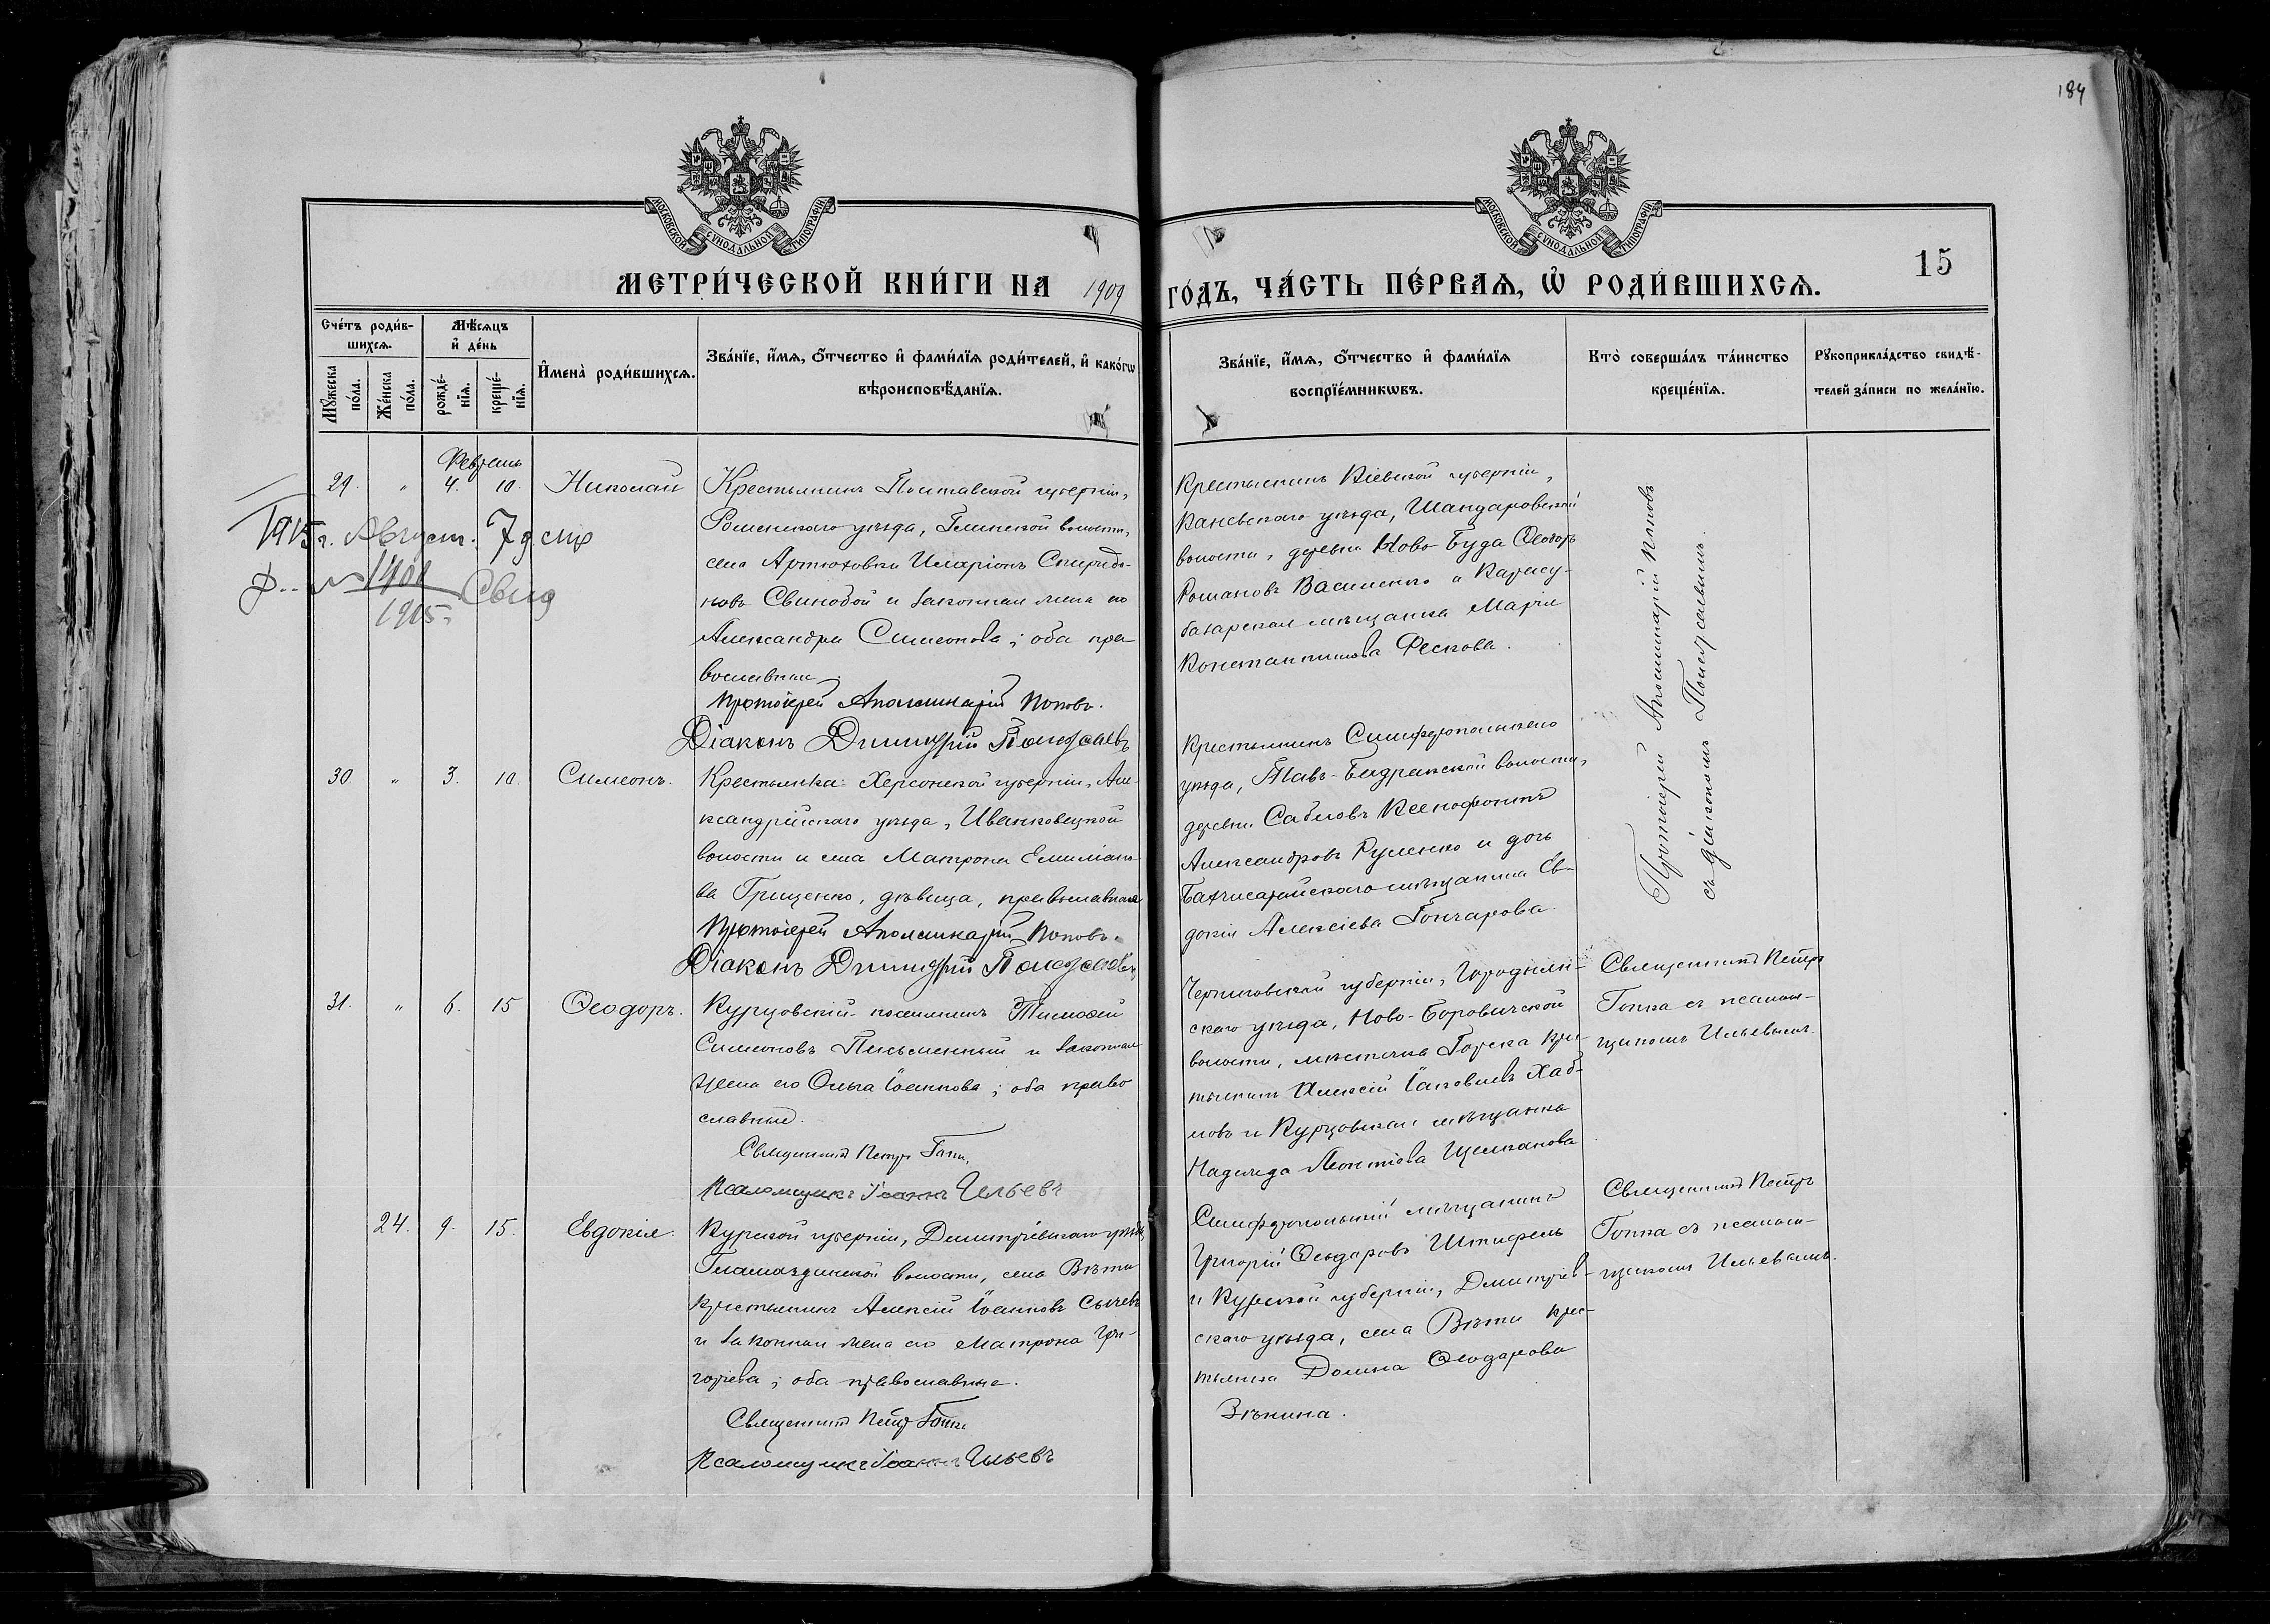 184
МОСКОВСКОЙ СѴНОДАЛЬНОЙ ТИПОГРАФІИ
МОСКОВСКОЙ СѴНОДАЛЬНОЙ ТИПОГРАФІИ
15
МЕТРИ́ЧЕСКОЙ КНИ́ГИ НА 1909 ГО́ДЪ, ЧА́СТЬ ПЕ́РВАѦ, Ѡ҆ РОДИ́ВШИХСѦ.
Сче́тъ роди́в-
шихсѧ.
Мꙋ́жеска по́ла.
Же́нска по́ла.
Мѣ́сѧцъ
и҆ де́нь
рожде́-
нїѧ.
креще́-
нїѧ.
И҆мена̀ роди́вшихсѧ.
Зва́нїе, и҆́мѧ, ѻ҆́тчество и҆ фами́лїѧ роди́телей, и҆ како́гѡ
вѣроисповѣ́данїѧ.
Зва́нїе, и҆́мѧ, ѻ҆́тчество и҆ фами́лїѧ
воспрїе́мникѡвъ.
Кто̀ соверша́лъ та́инство
креще́нїѧ.
Рꙋкоприкла́дство свидѣ́-
телей за́писи по жела́нїю.
Февраль
29. " 4. 10. Николай
Крестьянинъ Полтавской губерніи,
Роменскаго уѣзда, Глинской волости,
села Артюховки Иларіонъ Спиридо-
новъ Свинобой и законная жена его
Александра Симеонова; оба пра-
вославные
Протоіерей Аполлинарій Поповъ.
Діаконъ Димитрій
Крестьянинъ Кіевской губерніи,
Каневскаго уѣзда, Шандаровской
волости, деревни Ново-Буда Ѳеодоръ
Романовъ Василенко и Карасу-
базарская мѣщанка Марія
Константинова Фескова.
Протоіерей Аполлинарій Поповъ
съ діакономъ
1915 г. Август. 7 д.
1401
1915 г. Свид
30. " 3. 10. Симеонъ.
Крестьянка Херсонской губерніи, Але-
ксандрійскаго уѣзда, Иванковецкой
волости и села Матрона Емиліано-
ва Грищенко, дѣвица, православная
Протоіерей Аполлинарій Поповъ.
Діаконъ Димитрій
Крестьянинъ Симферопольскаго
уѣзда, Тавъ-Бадракской волости,
деревни Сабловъ Ксенофонтъ
Александровъ Руленко и дочь
Бахчисарайскаго мѣщанина Ев-
докія Алексіева Гончарова.
31. " 6. 15 Ѳеодоръ.
Курцовскій поселянинъ Тимоѳей
Симеоновъ Письменный и законная
жена его Ольга Іоаннова; оба право
славные.
Священникъ Петръ
Псаломщикъ Іоаннъ Ильевъ
Черниговской губерніи, Городнян-
скаго уѣзда, Ново-Боровичской
волости, мѣстечка Горска кре-
тьянинъ Алексій Іаковлевъ Хаб-
ловъ и Курцовская мѣщанка
Надежда Леонтіева Щелканова
Священникъ Петръ
съ псалом-
щикомъ Ильевымъ.
24. 9. 15. Евдокія.
Курской губерніи, Димитріевскаго уѣзда,
волости, села Вѣти
крестьянинъ Алексій Іоанновъ Сычевъ
и законная жена его Матрона Гри-
горіева; оба православные.
Священникъ Петръ
Псаломщикъ Іоаннъ Ильевъ
Симферопольскій мѣщанинъ
Григорій Ѳеодоровъ Штифель
и Курской губерніи, Дмитріев-
скаго уѣзда, села Вѣти крес-
тьянка Домна Ѳеодорова
Зѣнина.
Священникъ Петръ
съ псалом-
щикомъ Ильевымъ.